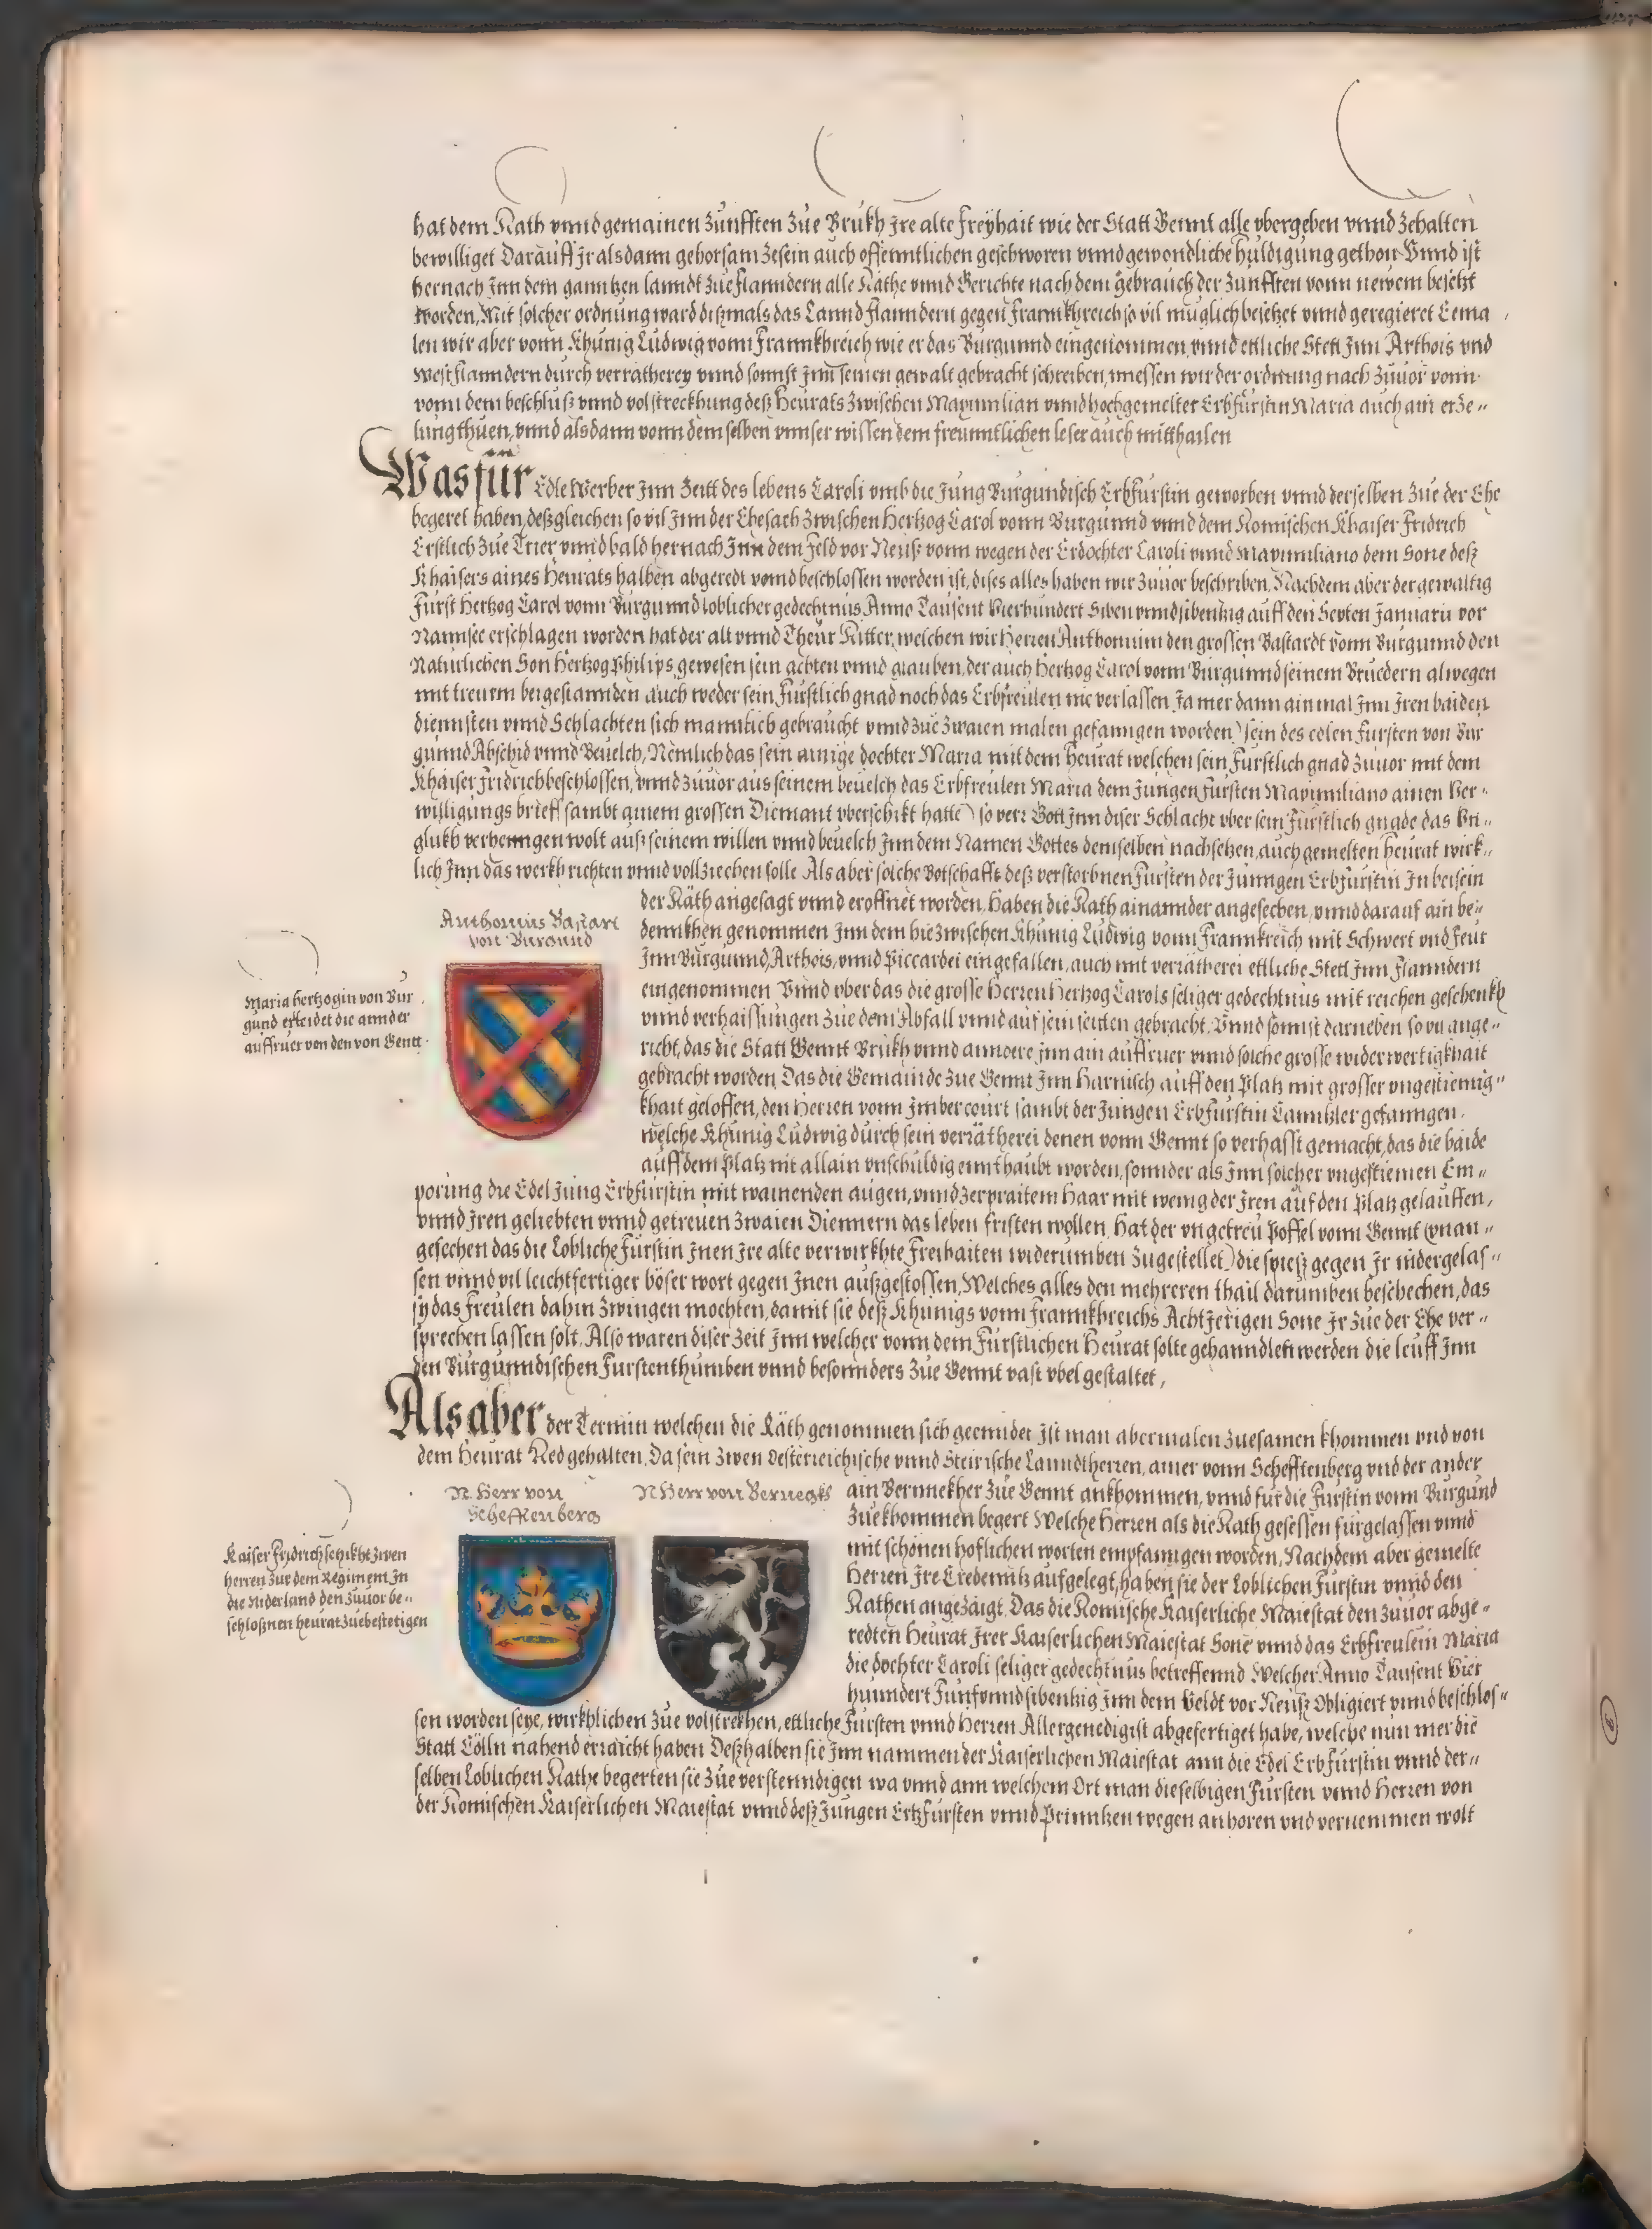 hat dem Rath vnnd gemainen Zunfften Zůe Brukh Jre alte Freyhait wie der Statt Gennt alle vbergeben vnnd Zehalten
bewilliget Darauff Jr alsdann gehorsam Zesein auch offenntlichen geschworen vnnd gewondliche huldigung gethon Vnnd ist
hernach Jnn dem ganntzen lanndt Zůe Flanndern alle Räthe vnnd Gerichte nach dem gebrauch der Zunfften vonn newem besetzt
worden, Mit solcher ordnung ward dißmals das Lannd Flanndern gegen Frannkhreich so vil muglich besetzet vnnd geregieret Eema
len wir aber vonn Khunig Ludwig vonn Frannkhreich wie er das Burgunnd eingenommen vnnd ettliche Stett Jnn Arthois vnd
Westflanndern durch verrätherey vnnd sonnst Jnn seinen gewalt gebracht schreiben, miessen wir der ordnung nach Zuuor vonn
vonn dem beschluß vnnd volstreckhung deß Heurats Zwischen Maximilian vnnd hochgemelter Erbfürstin Maria auch ain erze„
lung thuen, vnnd alsdann vonn dem selben vnnser wissen dem freunntlichen leser auch mitthailen
Was für Edle Werber Jnn Zeitt des lebens Caroli vmb die Jung Burgundisch Erbfurstin geworben vnnd derselben Zůe der Ehe
begeret haben, deßgleichen so vil Jnn der Ehesach Zwischen Hertzog Carol vonn Burgunnd vnnd dem Romischen Khaiser Fridrich
Erstlich Zůe Trier vnnd bald hernach Jnn dem Feld vor Neuß vonn wegen der Erdochter Caroli vnnd Maximiliano dem Sone deß
Khaisers aines Heurats halben abgeredt vnnd beschlossen worden ist, dises alles haben wir Zuuor beschriben, Nachdem aber der gewaltig
Fürst Hertzog Carol vonn Burgunnd loblicher gedechtnus Anno Tausent Vierhundert Siben vnnd sibentzig auff den Sexten Januarii vor
Nannsee erschlagen worden hat der alt vnnd Theur Ritter, welchen wir Herren Anthonium den grossen Bastardt vonn Burgunnd den
Naturlichen Son Hertzog Philips gewesen sein achten vnnd glauben, der auch Hertzog Carol vonn Burgunnd seinem Bruedern alwegen
mit treuem beigestannden auch weder sein Fürstlich gnad noch das Erbfreulen nie verlassen Ja mer dann ain mal Jnn Jren baiden
diennsten vnnd Schlachten sich mannlich gebraucht vnnd Zůe Zwaien malen gefanngen worden) sein des edlen Fursten von Bur
gunnd Abschid vnnd Beuelch, Nemlich das sein ainige dochter Maria mit dem Heurat welchen sein Fürstlich gnad Zuuor mit dem
Khaiser Fridrich beschlossen, vnnd Zuuor aus seinem beuelch das Erbfreulen Maria dem Jungen Fürsten Maximiliano ainen Ver„
willigungs brieff sambt ainem grossen Diemant vberschikt hatte) so verr Gott Jnn diser Schlacht vber sein Fürstlich gnade das Vn„
glukh verhenngen wolt auß seinem willen vnnd beuelch Jnn dem Namen Gottes demselben nachsetzen, auch gemelten heurat wirk„
lich Jnn das werkh richten vnnd vollziechen solle Als aber solche Botschafft deß verstorbnen Fursten der Junngen Erbfürstin Jn beisein
der Räth angesagt vnnd eröffnet worden, haben die Räth ainannder angesechen, vnnd darauf ain be„
dennkhen genommen Jnn dem hiezwischen Khunig Ludwig vonn Frannkreich mit Schwert vnd Feur
Jnn Burgunnd, Arthois, vnnd Piccardei eingefallen, auch mit verrätherei ettliche Stett Jnn Flanndern
eingenommen Vnnd vber das die grosse Herren Hertzog Carols seliger gedechtnus mit reichen geschenkh
vnnd verhaissungen Zůe dem Abfall vnnd auf sein seitten gebracht, Vnnd sonnst darneben so vil ange„
richt, das die Statt Gennt Brukh vnnd anndere Jnn ain auffruer vnnd solche grosse widerwertigkhait
gebracht worden, Das die Gemainde Zue Gennt Jnn Harnisch auff den Platz mit grosser vngestiemig„
khait geloffen, den Herren vonn Jmbercourt sambt der Jungen Erbfurstin Canntzler gefanngen,
welche Khunig Ludwig durch sein verrätherei denen vonn Gennt so verhasst gemacht, das die baide
auff dem Platz nit allain vnschuldigennthaubt worden, sonnder als Jnn solcher vngestiemen Em„
Anthonius Bastart
von Burgund
Maria Hertzogin von Bur
gund erleidet die annder
auffruer von den von Gentt
porung die Edel Jung Erbfürstin mit wainenden augen, vnnd Zerpraitem Haar mit wenig der Jren auf den Platz gelauffen,
vnnd Jren geliebten vnnd getreuen Zwaien Diennern das leben fristen wollen, hat der vngetreu Poffel vonn Gennt (vnan„
gesechen das die Lobliche Fürstin Jnen Jre alte verwirkhte Freihaiten widerumben Zugestellet) die spieß gegen Jr nidergelas„
sen vnnd vil leichtfertiger böser wort gegen Jnen außgestossen, Welches alles den mehreren thail darumben beschechen, das
sy das Freulen dahin Zwingen mochten, damit sie deß Khunigs vonn Frannkhreichs Acht Jerigen Sone Jr Zůe der Ehe ver„
sprechen lassen solt, Also waren diser Zeit Jnn welcher vonn dem Fürstlichen Heurat solte gehanndlet werden die leuff Jnn
den Burgunndischen Furstenthumben vnnd besonnders Zůe Gennt vast vbel gestaltet,
Als aber der Termin welchen die Räth genommen sich geenndet Jst man abermalen Zuesamen khommen vnd von
dem Heurat Red gehalten, Da sein Zwen Oesterreichische vnnd Steirische Lanndtherren, ainer vonn Schefftenberg vnd der ander
ain Pernnekher Zůe Gennt ankhommen, vnnd für die Fürstin vonn Burgund
Zuekhommen begert Welche Herren als die Räth gesessen fürgelassen vnnd
mit schönen hoflichen worten empfanngen worden, Nachdem aber gemelte
Herren Jre Credenntz aufgelegt, haben sie der Loblichen Fürstin vnnd den
Räthen angezaigt, Das die Romische Kaiserliche Maiestat den Zuuor abge„
redten Heurat Jrer Kaiserlichen Maiestat Sone vnnd das Erbfreulein Maria
die dochter Caroli seliger gedechtnus betreffennd Welcher Anno Tausent Vier
hunndert Funfvnndsibentzig Jnn dem Veldt vor Neuß Obligiert vnnd beschlos„
N. Herr von
Schefftenberg
N Herr von Bernegkh
Kaiser Fridrich schikht Zwen
herren Zue dem Regiment Jn
die Niderland den Zuuor be„
schloßnen heurat Zuebestetigen
sen worden seye, wirkhlichen Zůe volstrekhen, ettliche Fürsten vnnd Herren Allergenedigist abgefertiget habe, welche nun mer die
Statt Cölln nahend erraicht haben Deßhalben sie Jnn nammen der Kaiserlichen Maiestat ann die Edel Erbfürstin vnnd der„
selben Loblichen Räthe begerten sie Zůe verstenndigen wa vnnd ann welchem Ort man dieselbigen Fürsten vnnd Herren von
der Romischen Kaiserlichen Maiestat vnnd deß Jungen Ertzfürsten vnnd Prinntzen wegen anhoren vnd vernemmen wolt